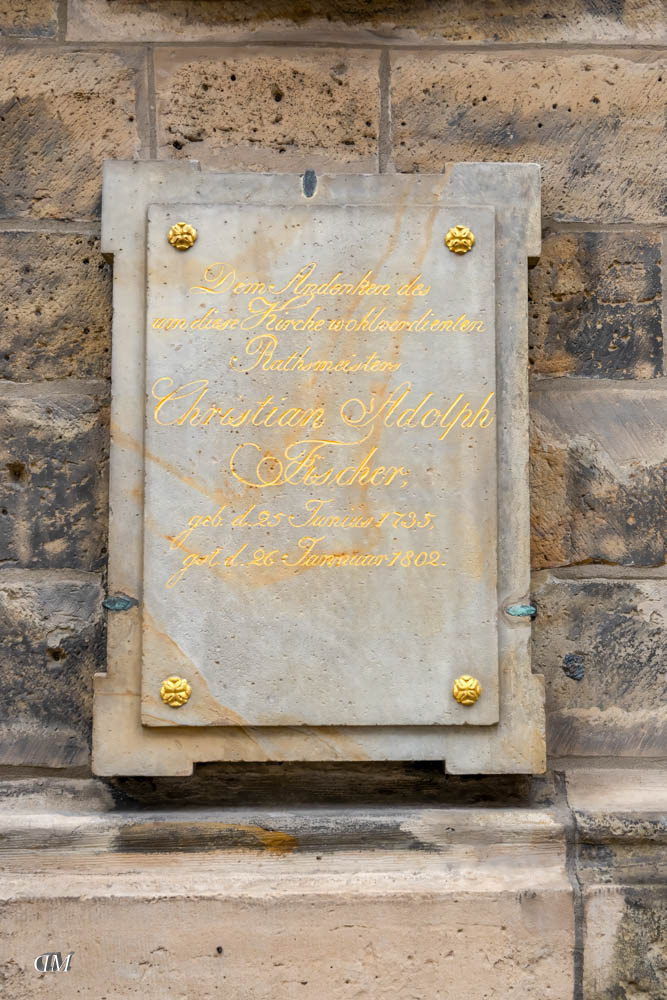 Dem Andenken des
um diese Kirche wohlverdienten
Rathsmeisters
Christian Adolph
Fischer,
geb. d. 25 Junius 1735.
gst. d. 26 Januar 1802.
DM